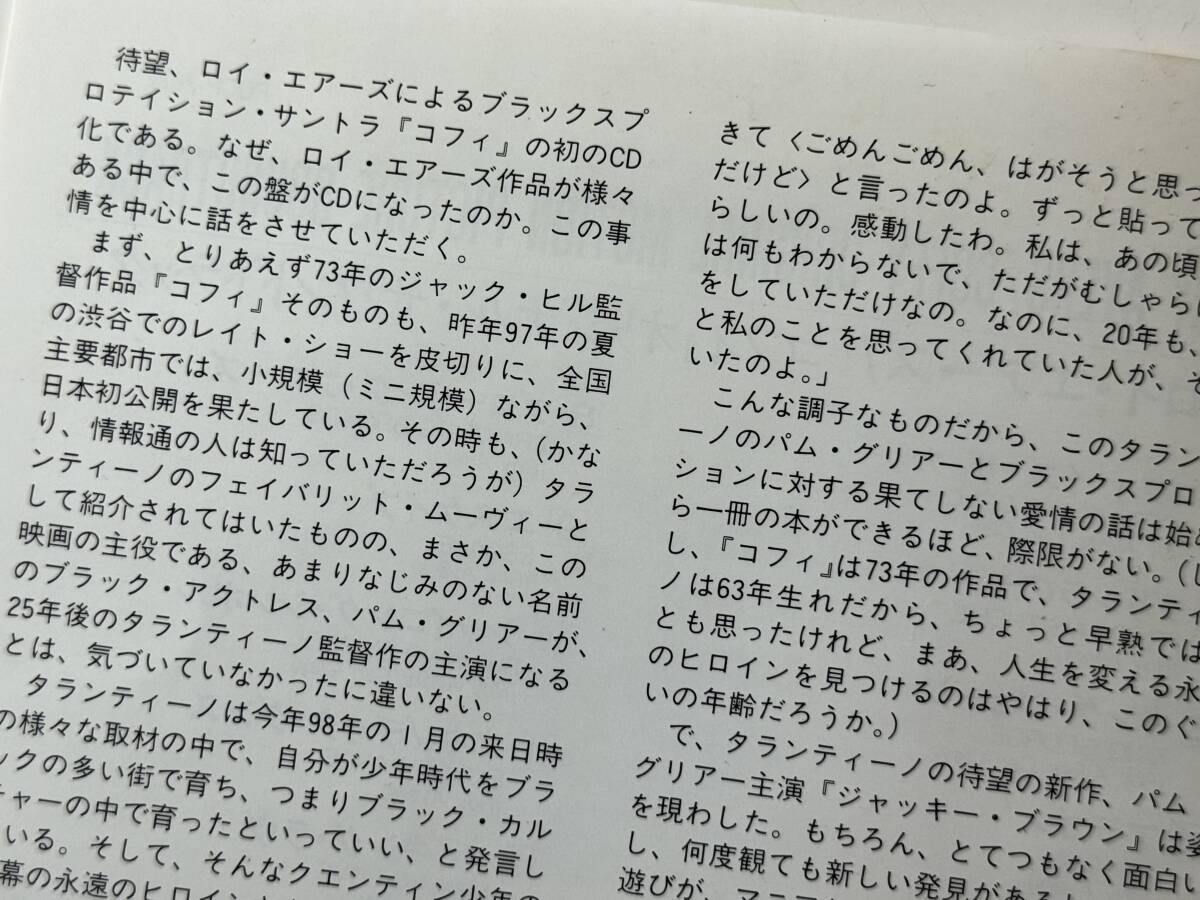 待望、ロイ・エアーズによるブラックスプ
ロテイション・サントラ『コフィ』の初のCD
化である。なぜ、ロイ・エアーズ作品が様々
ある中で、この盤がCDになったのか。この事
情を中心に話をさせていただく。
まず、とりあえず73年のジャック・ヒル監
督作品『コフィ』そのものも、昨年97年の夏
の渋谷でのレイト・ショーを皮切りに、全国
主要都市では、小規模（ミニ規模）ながら、
日本初公開を果たしている。その時も、（かな
り、情報通の人は知っていただろうが）タラ
ンティーノのフェイバリット・ムーヴィーと
して紹介されてはいたものの、まさか、この
映画の主役である、あまりなじみのない名前
のブラック・アクトレス、パム・グリアーが、
25年後のタランティーノ監督作の主演になる
とは、気づいていなかったに違いない。
タランティーノは今年98年の1月の来日時
の様々な取材の中で、自分が少年時代をブラ
ックの多い街で育ち、つまりブラック・カル
チャーの中で育ったといっていい、と発言し
いる。そして、そんなクエンティン少年の
幕の永遠のヒロイン
きて〈ごめんごめん、はがそうと思っ
だけど〉と言ったのよ。ずっと貼って
らしいの。感動したわ。私は、あの頃
は何もわからないで、ただがむしゃらに
をしていただけなの。なのに、20年も、
と私のことを思ってくれていた人が、そ
いたのよ。」
こんな調子なものだから、このタラン
ーノのパム・グリアーとブラックスプロ
ションに対する果てしない愛情の話は始め
ら一冊の本ができるほど、際限がない。（し
し、『コフィ』は73年の作品で、タランティ
ノは63年生れだから、ちょっと早熟では
とも思ったけれど、まあ、人生を変える永
のヒロインを見つけるのはやはり、このぐ
いの年齢だろうか。）
で、タランティーノの待望の新作、パム・
グリアー主演『ジャッキー・ブラウン』は姿
を現わした。もちろん、とてつもなく面白い
し、何度観ても新しい発見がある
遊びが、マニア